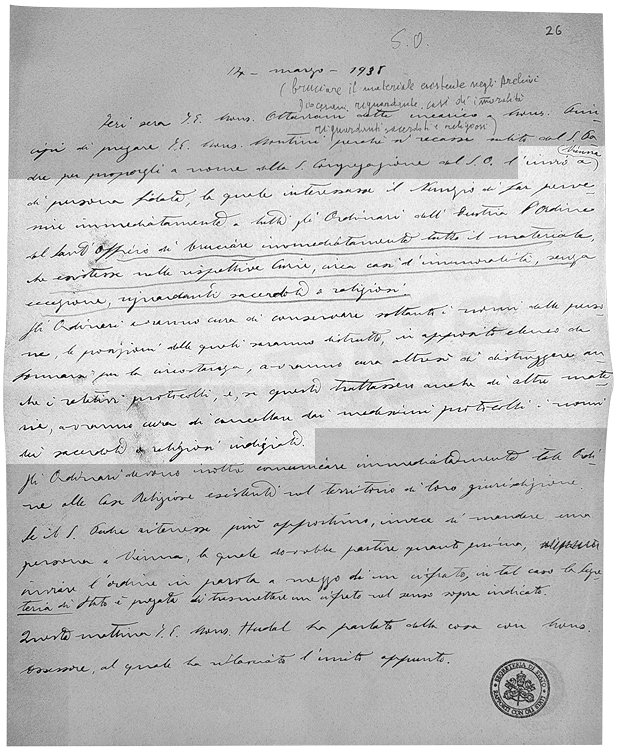 26
S. O.
14 - marzo - 1938
(bruciare il materiale esistente negli Archivi
Diocesani, riguardante casi di immoralità
riguardanti sacerdoti e religiosi)
Ieri sera S.E. Mons. Ottaviani dette incarico a Mons.
di pregare S.E. Mons. Montini, perché si recasse subito dal S. Pa-
dre per proporgli a nome della S. Congregazione del S.O. l'invio a (Vienna)
di persona fidata, la quale interessasse il Nunzio di far perve-
nire immediatamente a tutti gli Ordinari dell'Austria l'Ordine
del Sant'Offizio di bruciare immediatamente tutto il materiale,
che esistesse nelle rispettive Curie, circa casi d'immoralità, senza
eccezione, riguardanti sacerdoti e religiosi.
Gli Ordinari avranno cura di conservare soltanto i nomi delle perso-
ne, le posizioni delle quali saranno distrutte, in apposito elenco da
formarsi per la circostanza, avranno cura altresì di distruggere an-
che i relativi protocolli, e, se questi trattassero anche di altre mate-
rie, avranno cura di cancellare dai medesimi protocolli i nomi
dei sacerdoti e religiosi indiziati.
Gli Ordinari devono inoltre comunicare immediatamente tale Ordi-
ne alle Case Religiose esistenti nel territorio di loro giurisdizione.
Se il S. Padre ritenesse più opportuno, invece di mandare una
persona a Vienna, la quale dovrebbe partire quanto prima,
inviare l'ordine in parola a mezzo di un cifrato, in tal caso la Segre-
teria di Stato è pregata di trasmettere un cifrato nel senso sopra indicato.
Questa mattina S.E. Mons. Hudal ha parlato della cosa con Mons.
Assessore, al quale ha rilasciato l'unito appunto.
SEGRETERIA DI STATO
RAPPORTI CON GLI STATI